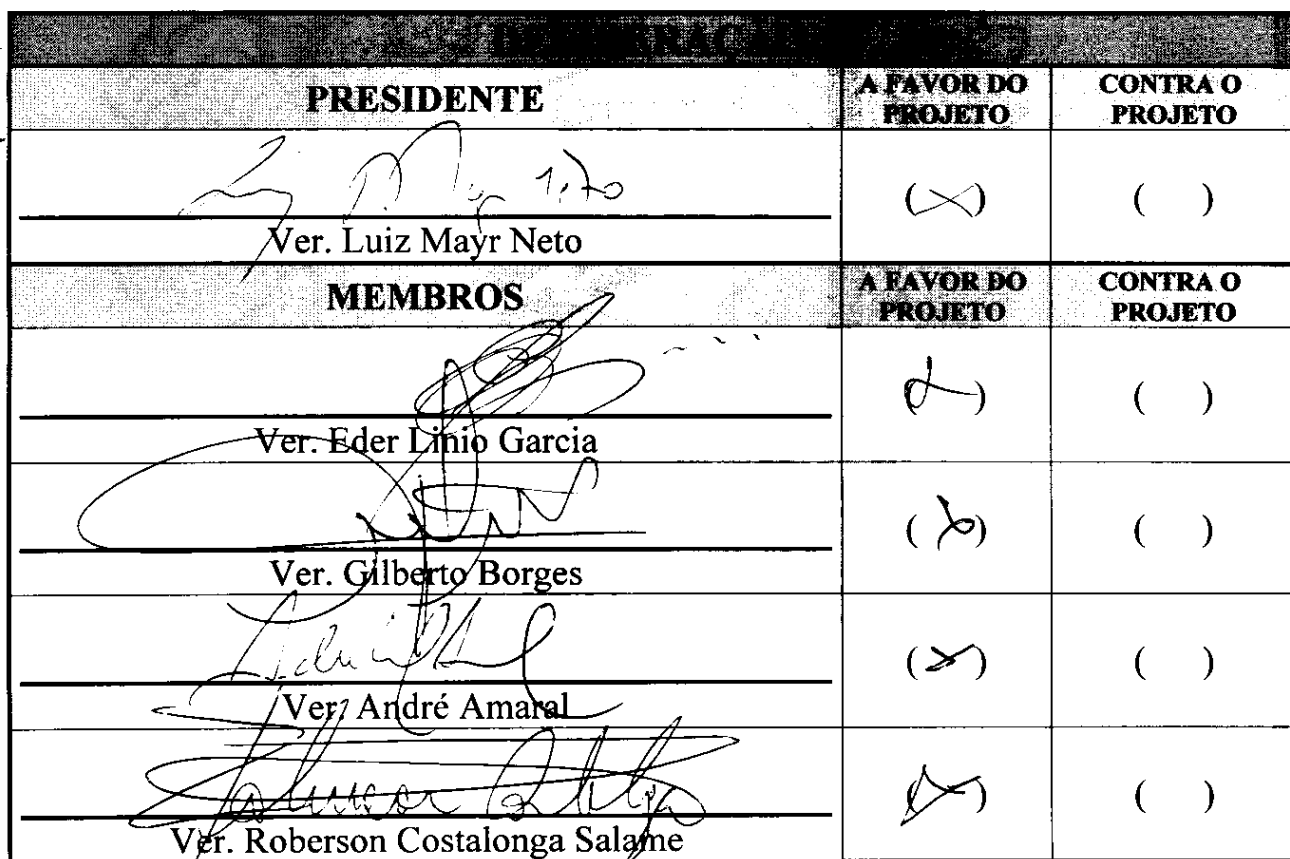 PRESIDENTE A FAVOR DO PROJETO CONTRA O PROJETO
(X) ( )
Ver. Luiz Mayr Neto
MEMBROS A FAVOR DO PROJETO CONTRA O PROJETO
(X) ( )
Ver. Eder Linio Garcia
(X) ( )
Ver. Gilberto Borges
(X) ( )
Ver. André Amaral
(X) ( )
Ver. Roberson Costalonga Salame